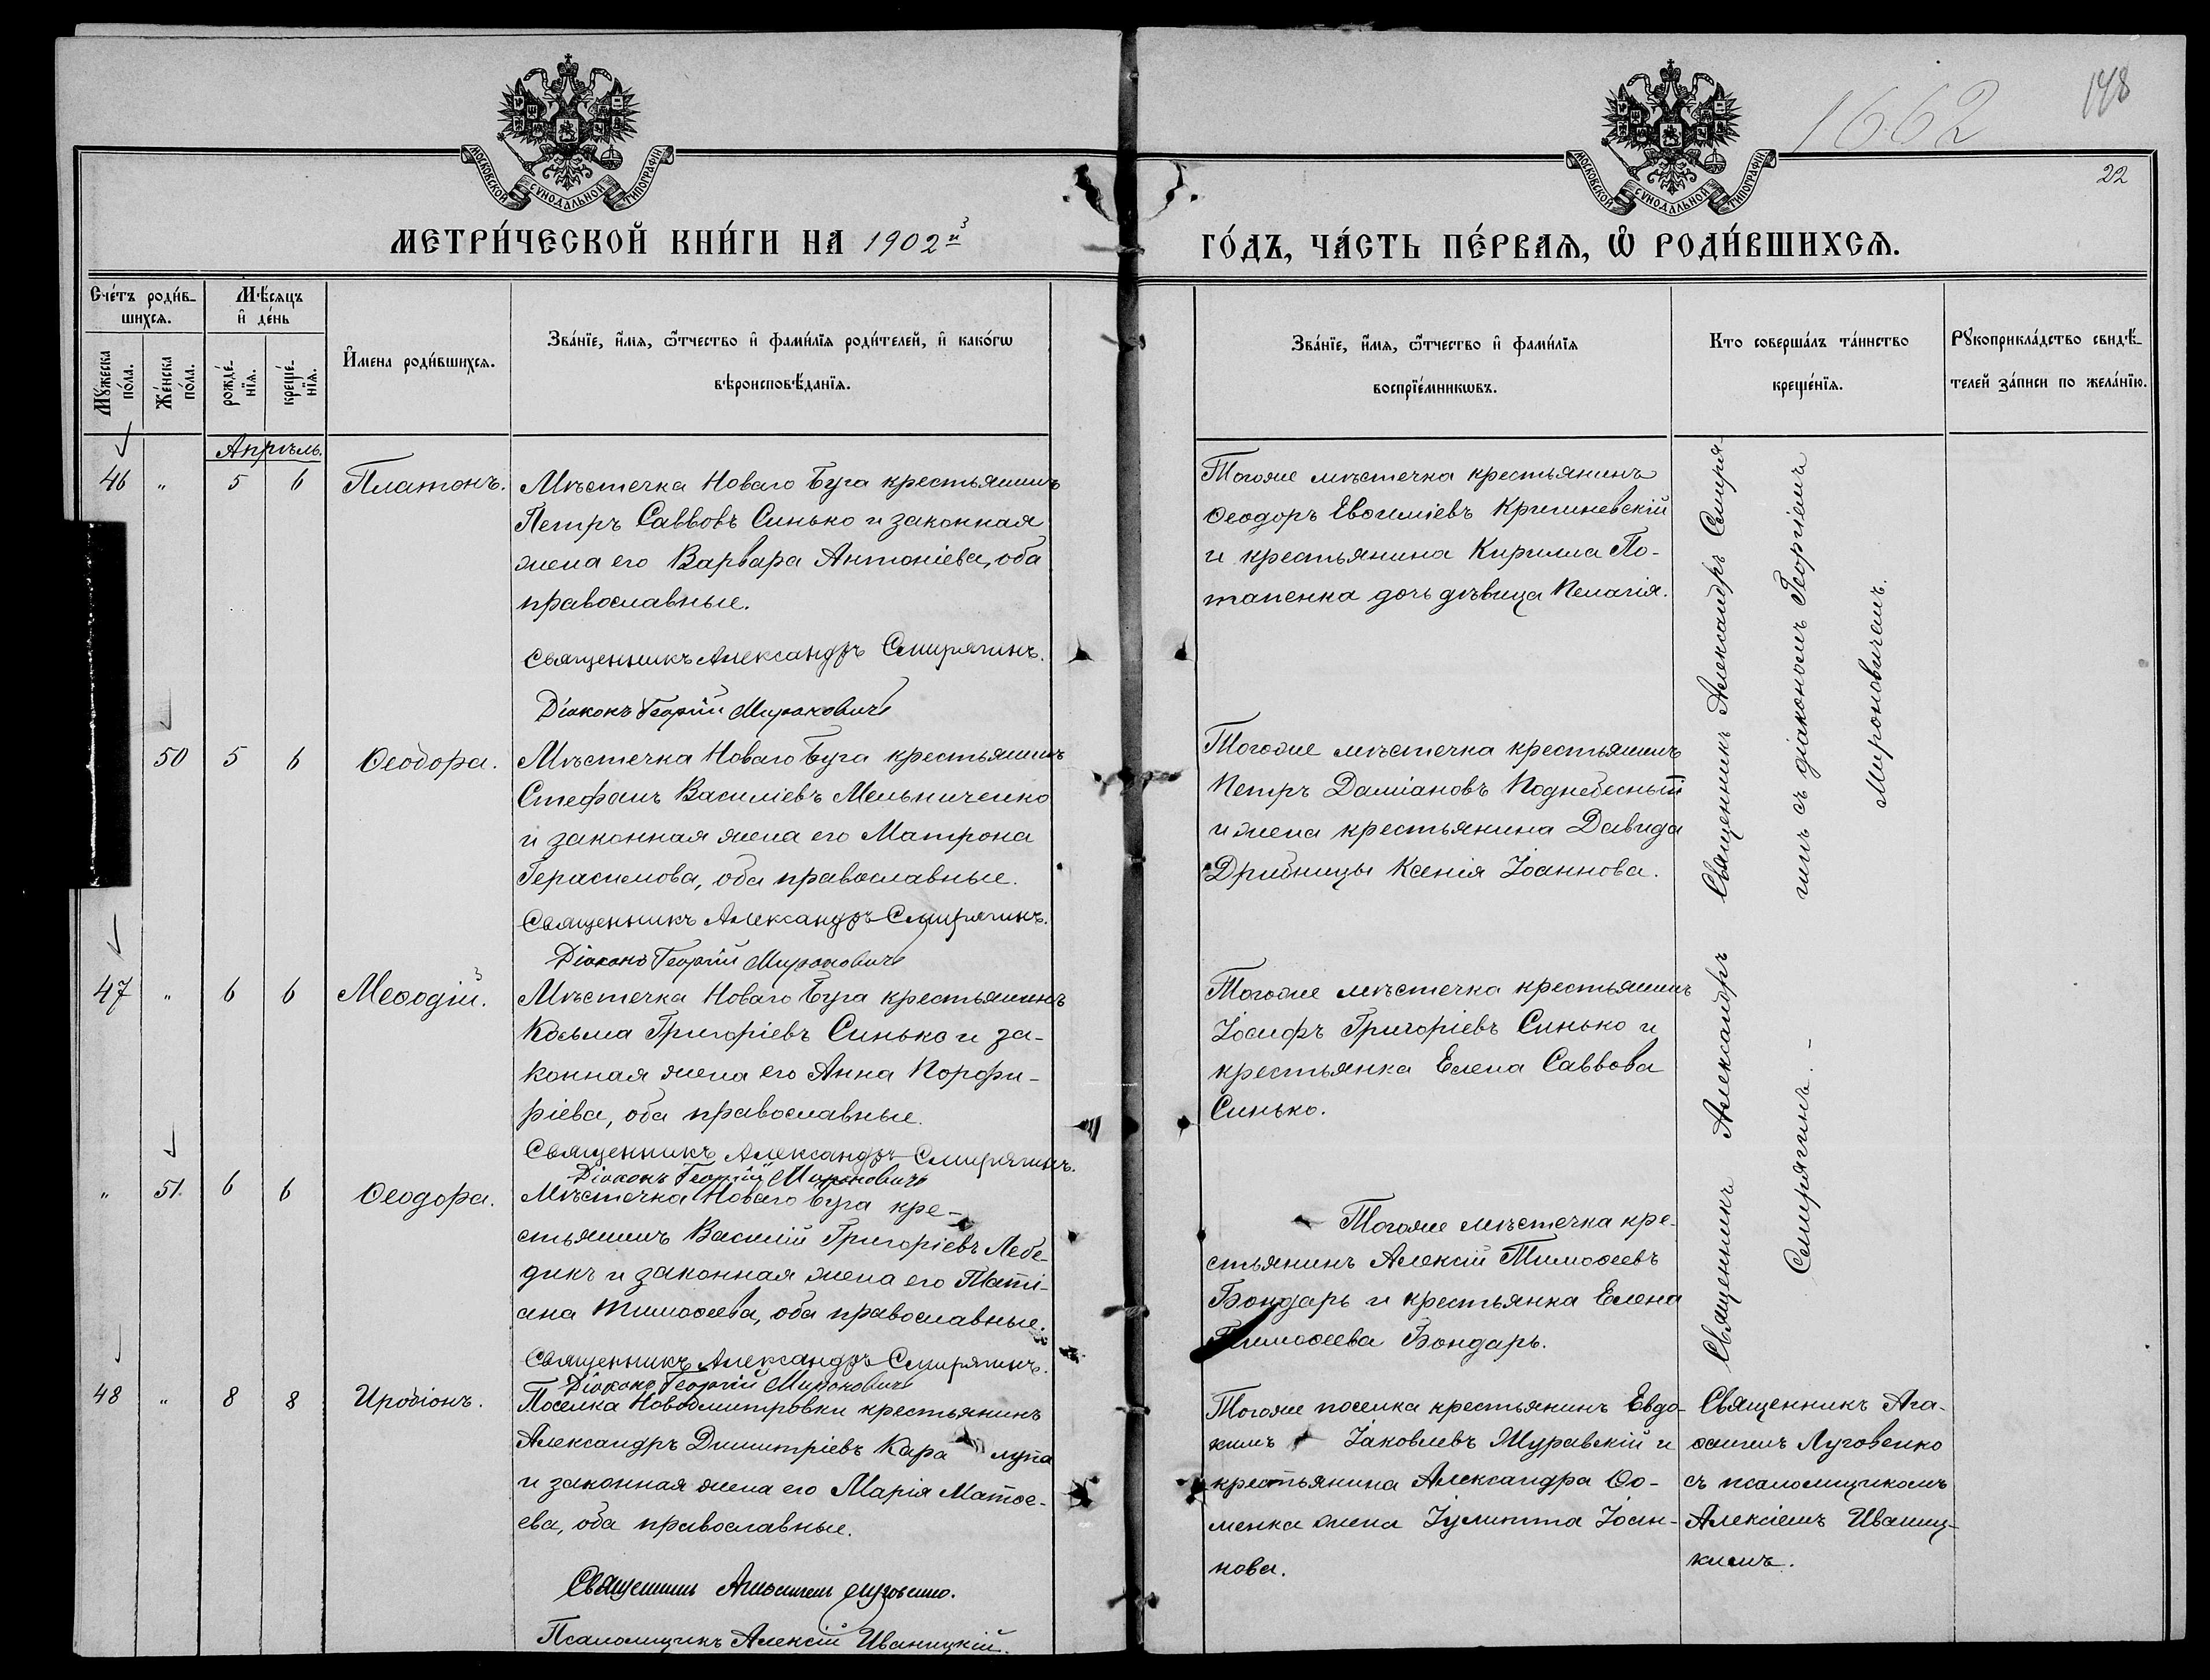 1662
148
22
МОСКОВСКОЙ СѴНОДАЛЬНОЙ ТИПОГРАФІИ
МОСКОВСКОЙ СѴНОДАЛЬНОЙ ТИПОГРАФІИ
МЕТРИ́ЧЕСКОЙ КНИ́ГИ НА 1902й
ГО́ДЪ, ЧА́СТЬ ПЕ́РВАѦ, Ѡ҆ РОДИ́ВШИХСѦ.
Сче́тъ роди́в-
шихсѧ.
Мꙋ́жеска по́ла.
Же́нска по́ла.
Мѣ́сѧцъ
и҆ де́нь
рожде́-
нїѧ.
креще́-
нїѧ.
И҆мена роди́вшихсѧ.
Зва́нїе, и҆́мѧ, ѻ҆́тчество и҆ фами́лїѧ роди́телей, и҆ како́гѡ
вѣроисповѣ́данїѧ.
Зва́нїе, и҆́мѧ, ѻ҆́тчество и҆ фами́лїѧ
воспрїе́мникѡвъ.
Кто соверша́лъ та́инство
креще́нїѧ.
Рꙋкоприкла́дство свидѣ́-
телей за́писи по жела́нїю.
Апрѣль.
46 " 5 6 Платонъ.
Мѣстечка Новаго Буга крестьянинъ
Петръ Саввовъ Синько и законная
жена его Варвара Антоніева, оба
православные.
Священникъ Александръ Смирягинъ.
Діаконъ Георгій Мироновичъ
Тогоже мѣстечка крестьянинъ
Ѳеодоръ Евѳиміевъ Кришневскій
и крестьянина Кирилла По-
тапенка дочь дѣвица Пелагія.
Священникъ Александръ Смиря-
гинъ съ діакономъ Георгіемъ
Мироновичемъ.
50 5 6 Ѳеодора.
Мѣстечка Новаго Буга крестьянинъ
Стефанъ Василіевъ Мельниченко
и законная жена его Матрона
Герасимова, оба православные.
Священникъ Александръ Смирягинъ.
Діаконъ Георгій Мироновичъ
Тогоже мѣстечка крестьянинъ
Петръ Даміановъ Поднебесный
и жена крестьянина Давида
Дрибницы Ксенія Іоаннова.
47 " 6 6 Меѳодій.
Мѣстечка Новаго Буга крестьянинъ
Косьма Григоріевъ Синько и за-
конная жена его Анна Порфи-
ріева, оба православные.
Священникъ Александръ Смирягинъ.
Діаконъ Георгій Мироновичъ
Тогоже мѣстечка крестьянинъ
Іосифъ Григоріевъ Синько и
крестьянка Елена Саввова
Синько.
Священникъ Александръ
Смирягинъ. –
" 51. 6 6 Ѳеодора.
Мѣстечка Новаго Буга кре-
стьянинъ Василій Григоріевъ Лебе-
дикъ и законная жена его Таті-
ана Тимоѳеева, оба православные.
Священникъ Александръ Смирягинъ.
Діаконъ Георгій Мироновичъ
Тогоже мѣстечка кре-
стьянинъ Алексій Тимоѳеевъ
Бондарь и крестьянка Елена
Тимоѳеева Бондарь.
48 " 8 8 Иродіонъ.
Поселка Новодмитровки крестьянинъ
Александръ Димитріевъ Кара лупа
и законная жена его Марія Матѳе-
ева, оба православные.
Священникъ Агаѳангелъ Луговенко.
Псаломщикъ Алексій Иваницкій.
Тогоже поселка крестьянинъ Евдо-
кимъ Іаковлевъ Журавскій и
крестьянина Александра Ѳо-
менка жена Іулитта Іоан-
нова.
Священникъ Ага-
ѳангелъ Луговенко
съ псаломщикомъ
Алексіемъ Иваниц-
кимъ.